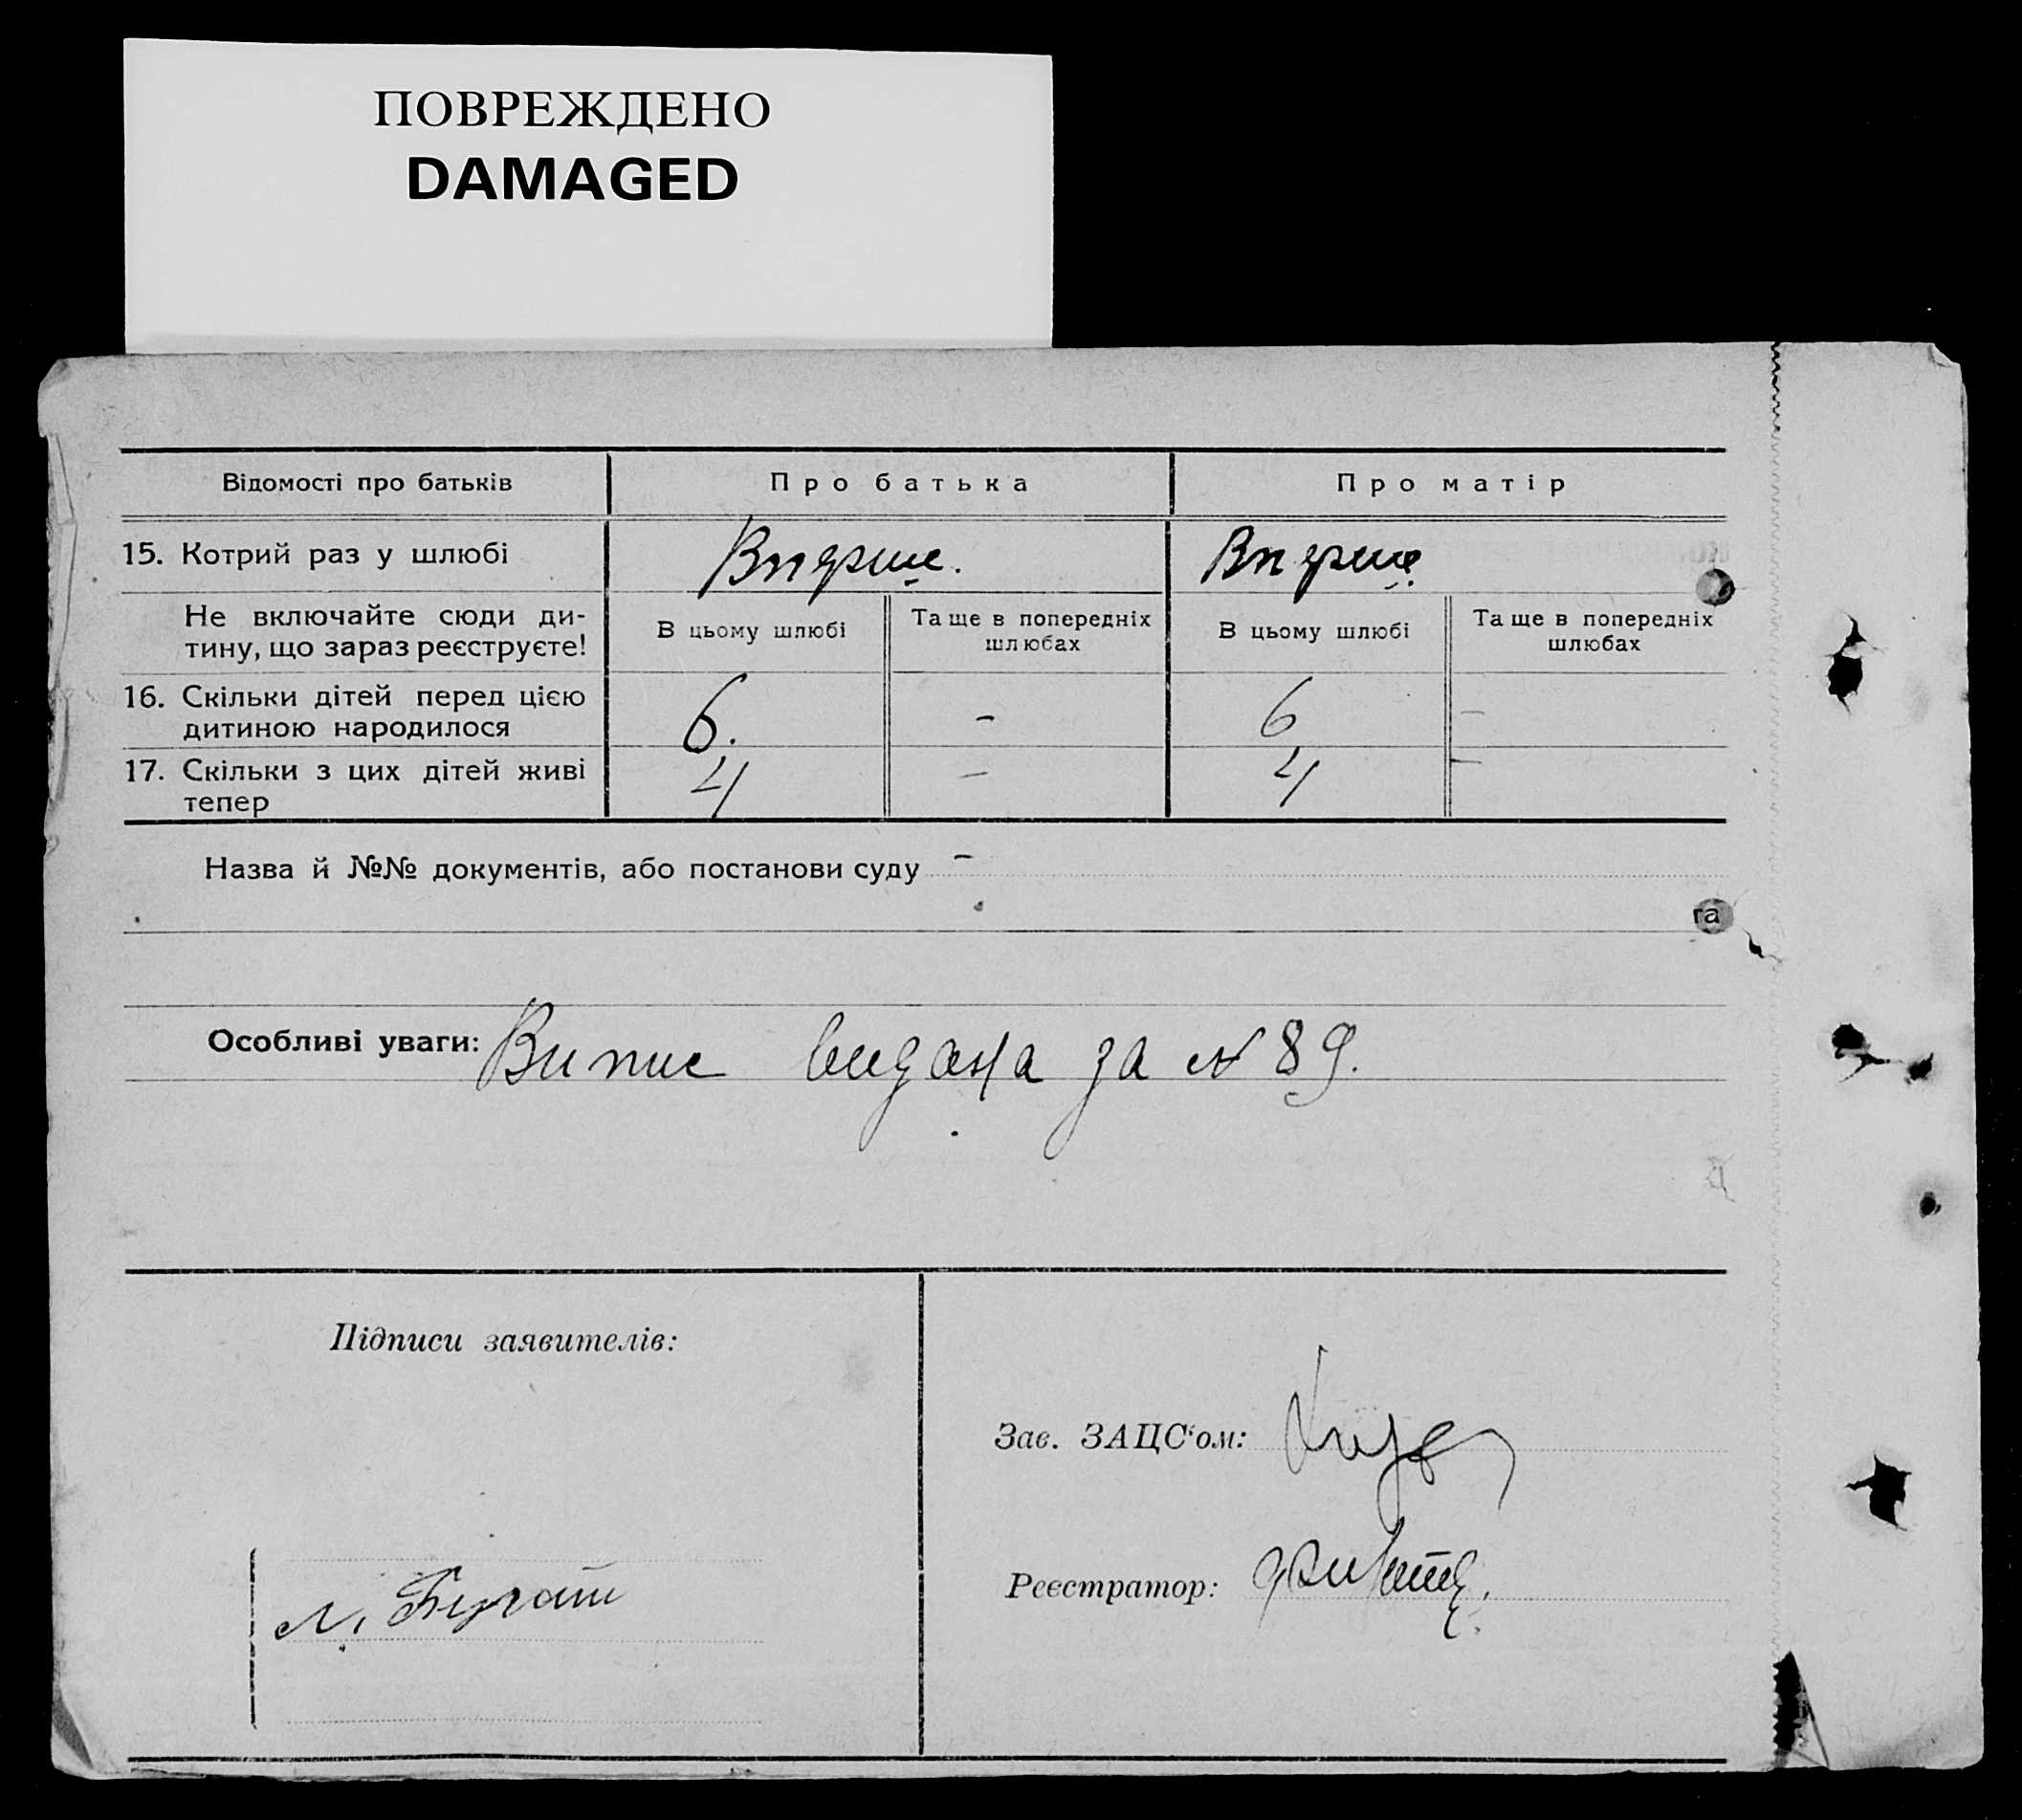 ПОВРЕЖДЕНО
DAMAGED
Відомості про батьків
Про батька
Про матір
15. Котрий раз у шлюбі
Вперше.
Вперше
Не включайте сюди ди-
тину, що зараз реєструєте!
В цьому шлюбі
Та ще в попередніх
шлюбах
В цьому шлюбі
Та ще в попередніх
шлюбах
16. Скільки дітей перед цією
дитиною народилося
6.
-
6
-
17. Скільки з цих дітей живі
тепер
4
-
4
-
Назва й №№ документів, або постанови суду -
га
Особливі уваги: Випис видана за № 89.
Підписи заявителів:
Зав. ЗАЦС‘ом:
Реєстратор: